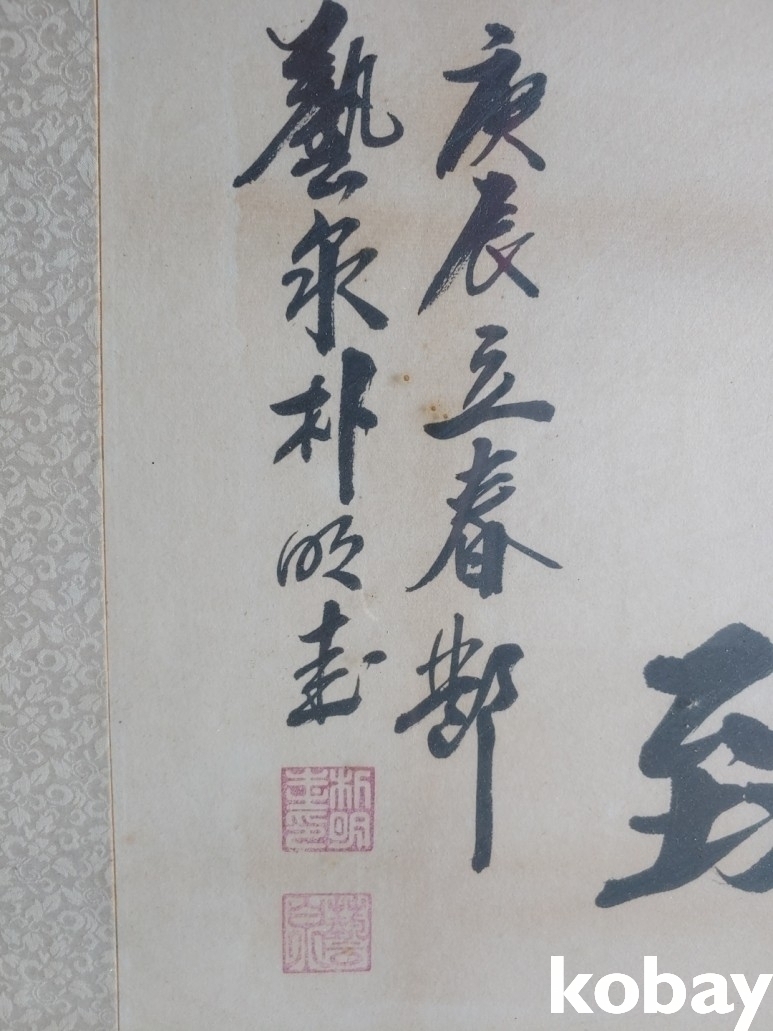 庚辰立春節
藝泉朴明
朴明
藝泉
kobay